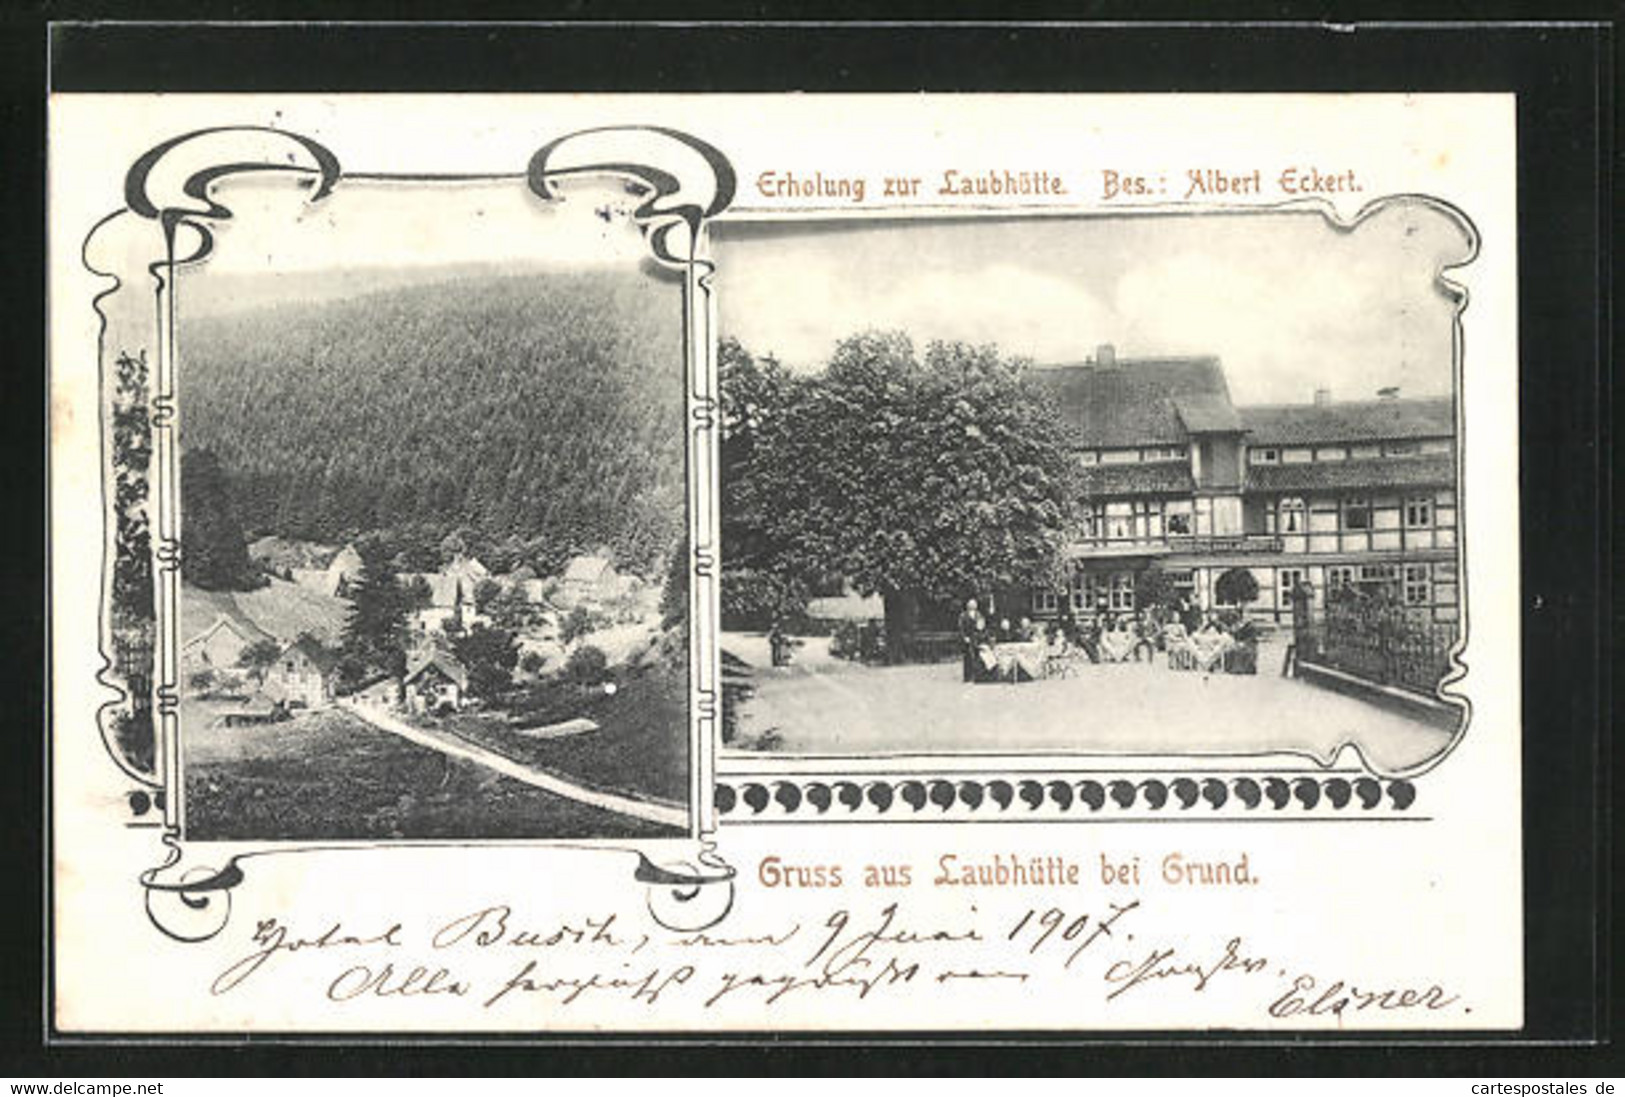 Erholung zur Laubhütte. Bes.: Albert Eckert.
Gruss aus Laubhütte bei Grund.
Hotel Busch, am 9 Juni 1907.
Alle herzlichst gegrüßt von
Elsner.
www.cartespostales.eu
cartespostales de